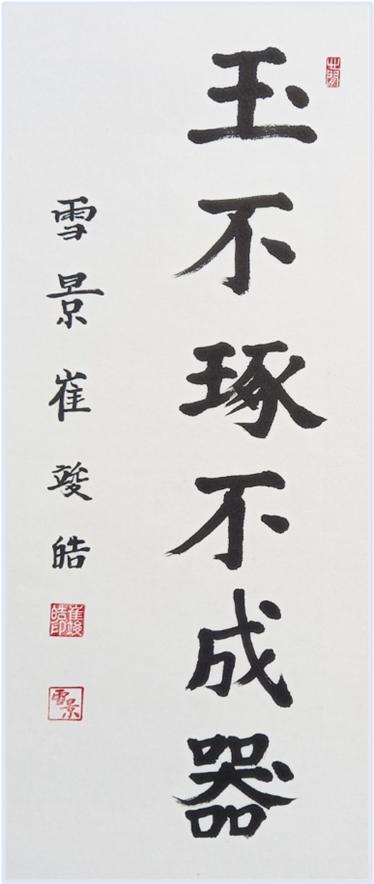 玉不琢不成器
雪景崔竣皓
崔竣皓印
雪景